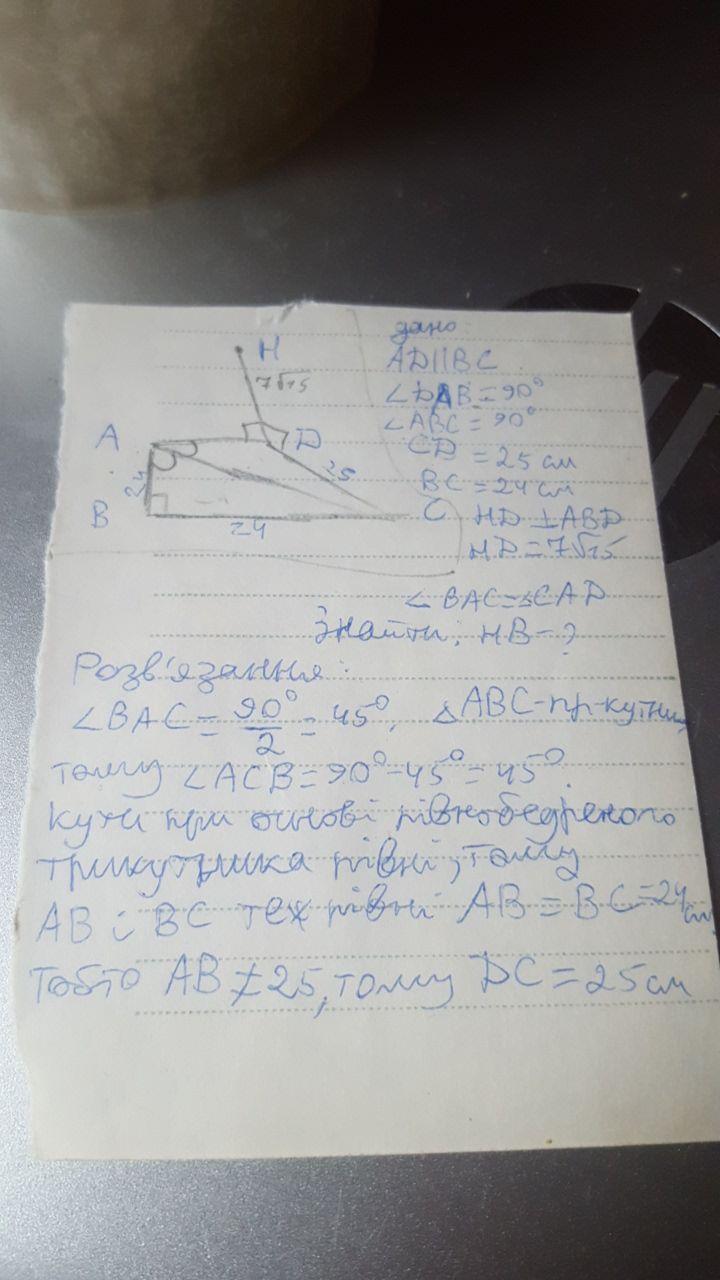 H
7√15
A
D
24
25
B
24
C
дано:
AD||BC
∠DAB = 90°
∠ABC = 90°
CD = 25 см
BC = 24 см
HD ⊥ ABD
HD = 7√15
∠BAC = ∠CAD
Знайти: HB - ?
Розв'язання:
∠BAC = 90°/2 = 45°, △ABC - пр-кутний
тому ∠ACB = 90° - 45° = 45°.
Кути при основі рівнобедреного
трикутника рівні, тому
AB і BC теж рівні AB = BC = 24 см
Тобто AB ≠ 25, тому DC = 25 см